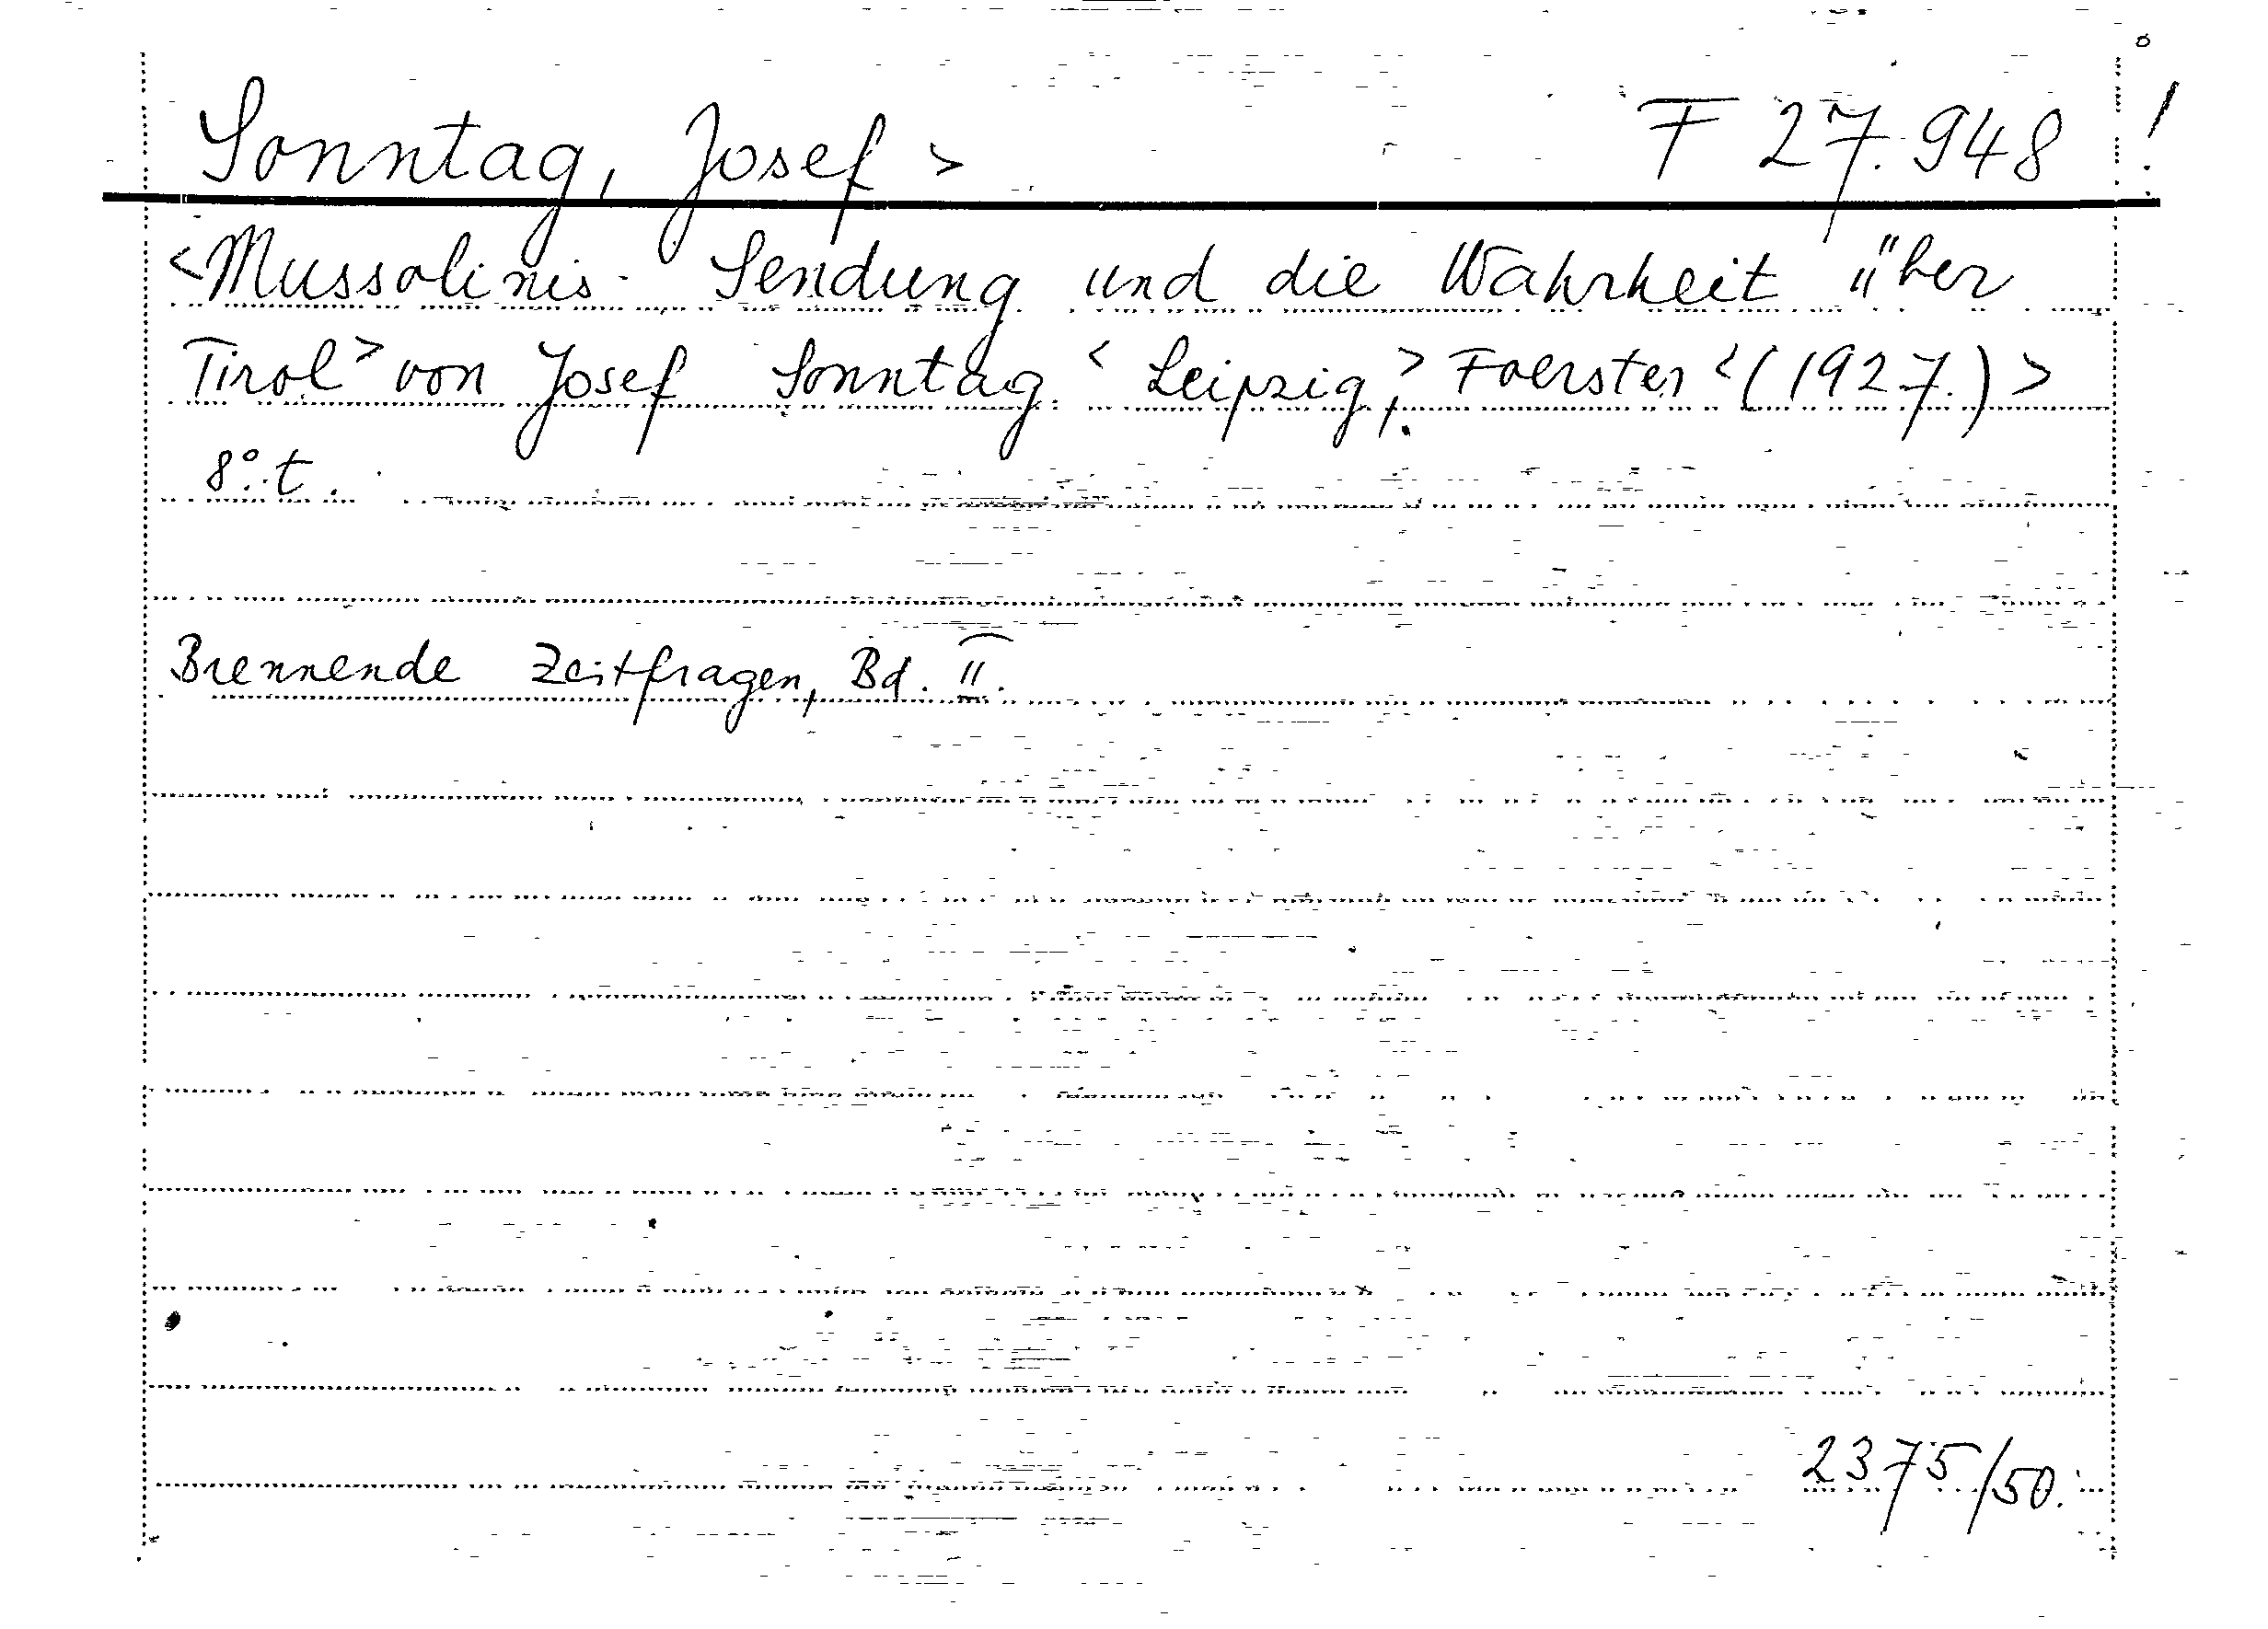 Sonntag, Josef > F 27.948 !
<Mussolinis Sendung und die Wahrheit über
Tirol> von Josef Sonntag. <Leipzig,> Foerster <(1927.)>
8°. t.
Brennende Zeitfragen, Bd. II.
2375/50.